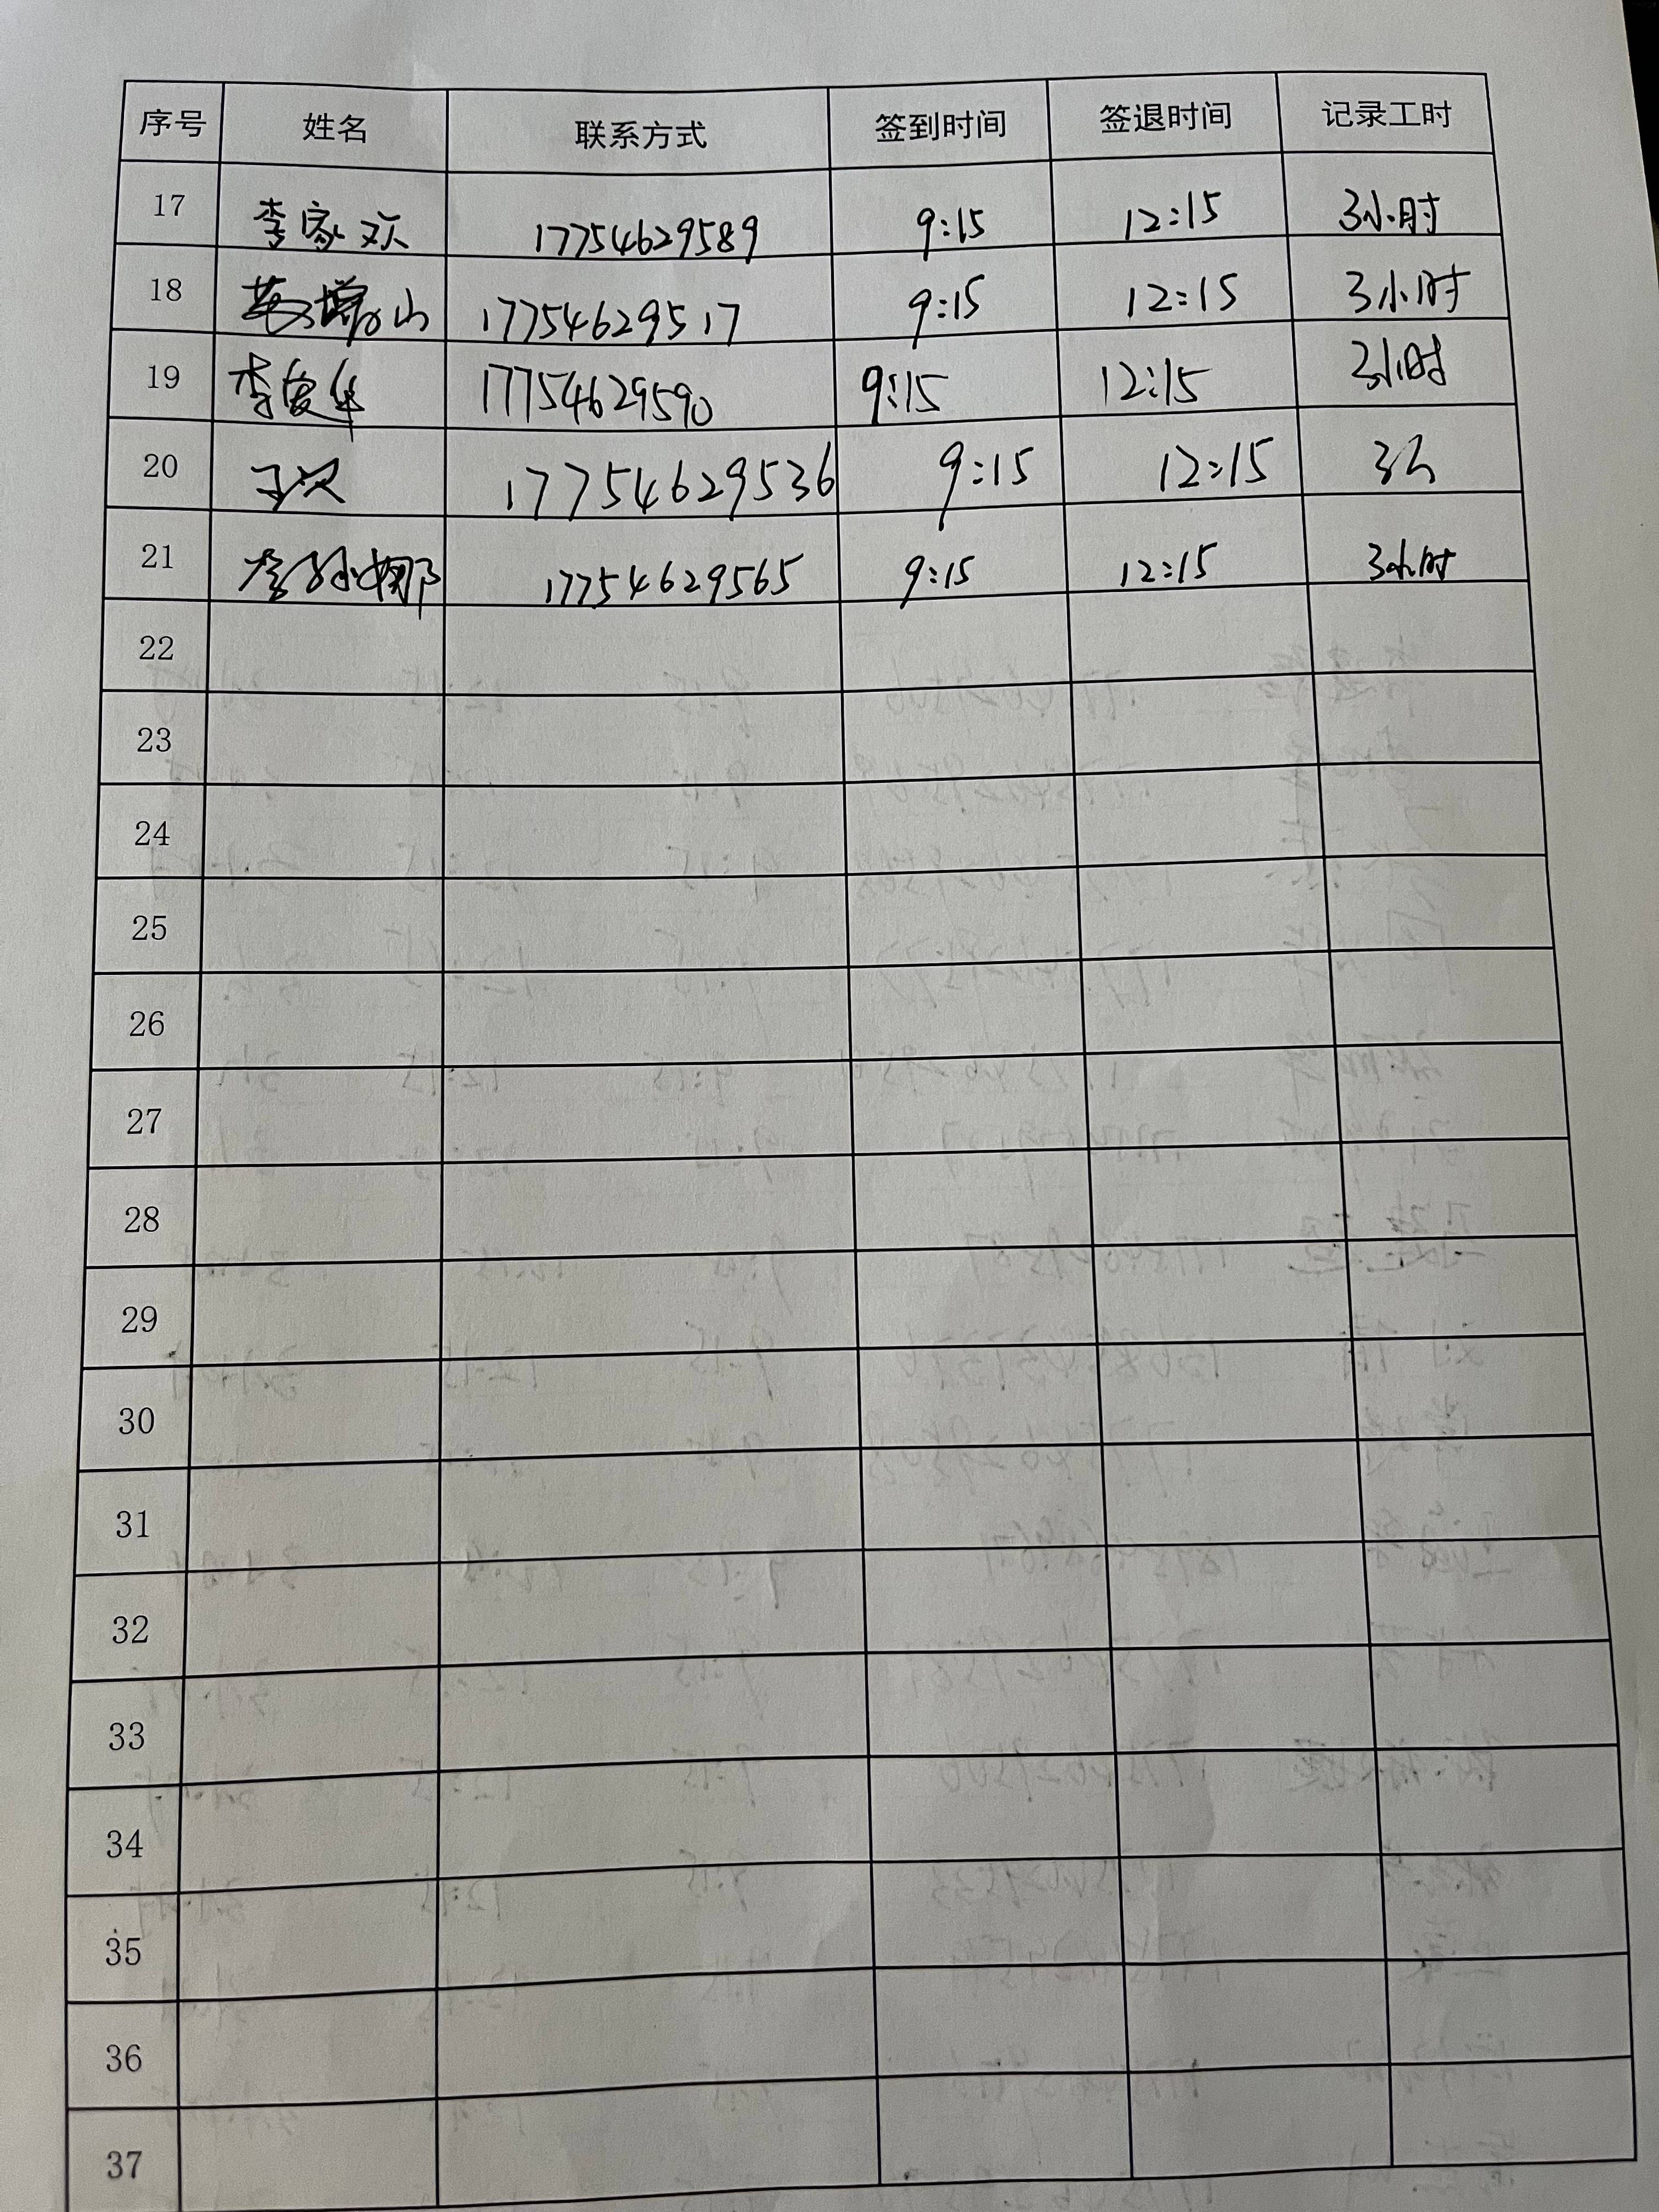 序号 姓名 联系方式 签到时间 签退时间 记录工时
17 李家欢 17754629589 9:15 12:15 3小时
18 山 17754629517 9:15 12:15 3小时
19 李俊华 17754629590 9:15 12:15 3小时
20 17754629536 9:15 12:15 3h
21 李娜 17754629565 9:15 12:15 3小时
22
23
24
25
26
27
28
29
30
31
32
33
34
35
36
37